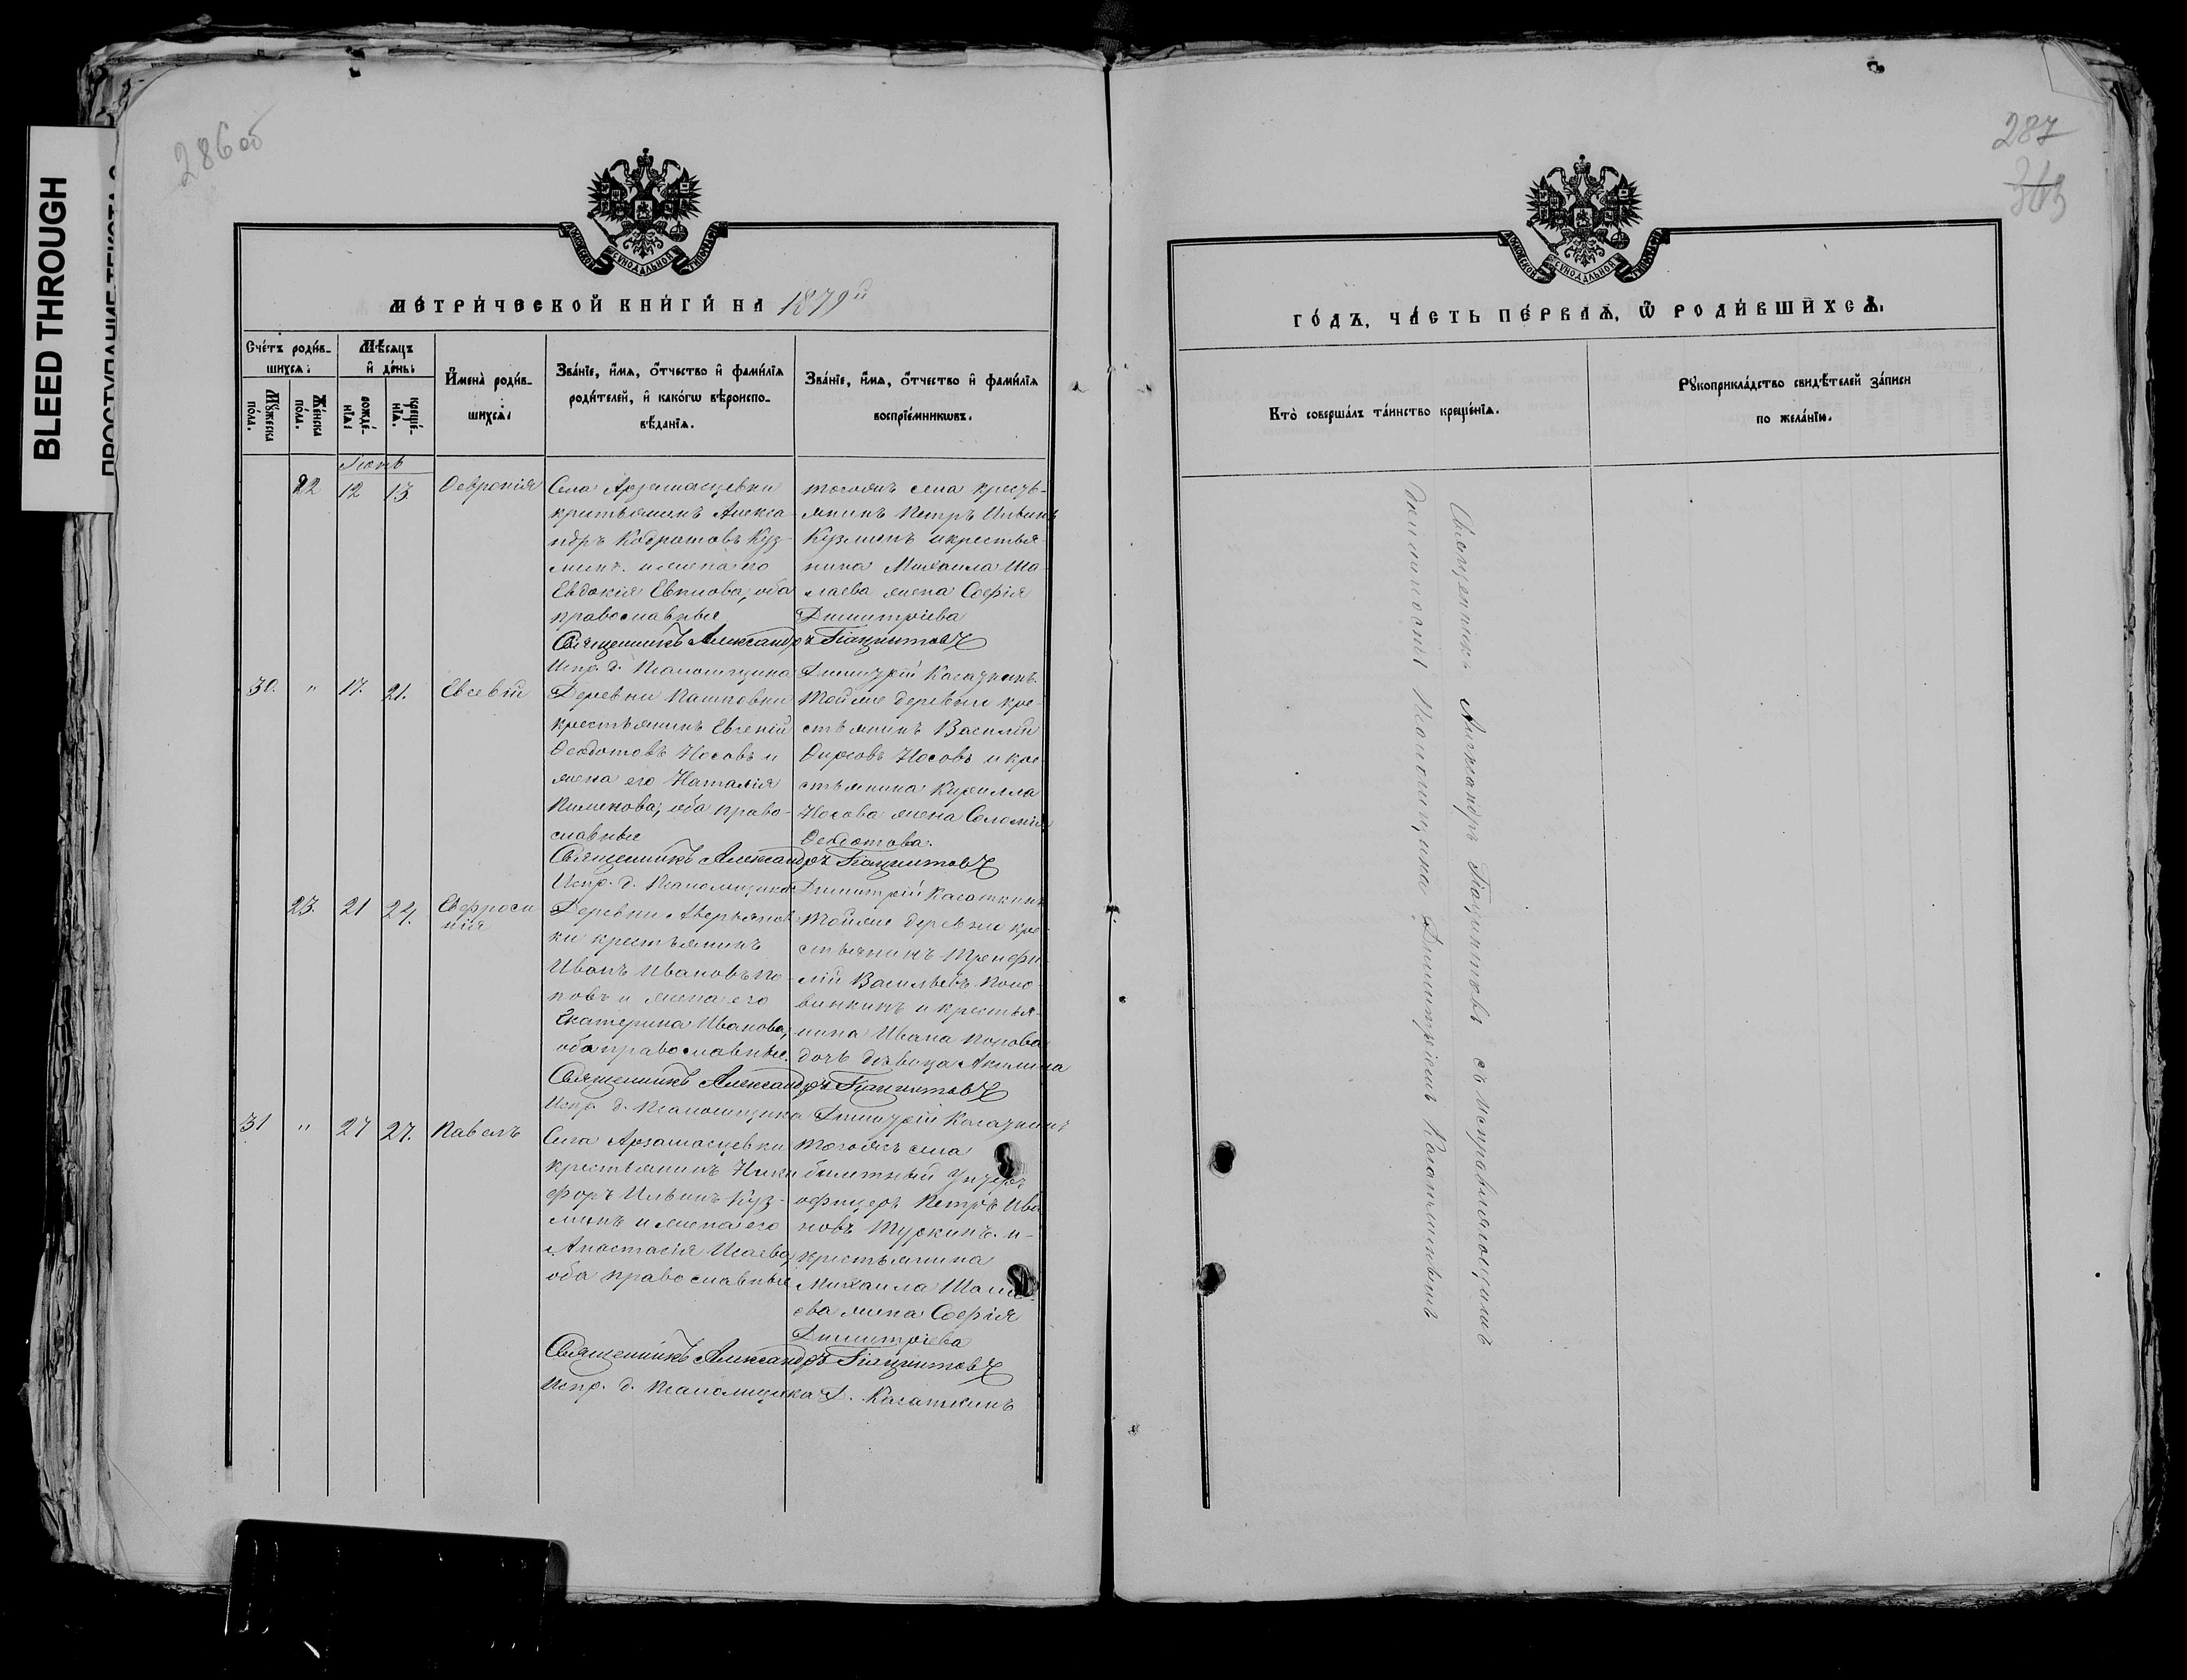 BLEED THROUGH
286 об
МОСКОВСКОЙ СУНОДАЛЬНОЙ ТИПОГРАФІИ
МЕТРИ́ЧЕСКОЙ КНИ́ГИ НА 1879й
Сче́тъ роди́в-
шихся:
Мѣ́сяцъ
и҆ де́нь:
Му́жеска
по́ла.
Же́нска
по́ла.
рожде́-
нїѧ:
креще́-
нїѧ.
И҆мена̀ роди́в-
шихсѧ:
Зва́нїе, и҆́мѧ, ѻ҆́тчество и҆ фами́лїѧ
роди́телей, и҆ како́гѡ вѣроиспо-
вѣ́данїѧ.
Зва́нїе, и҆́мѧ, ѻ҆́тчество и҆ фами́лїѧ
воспрїе́мникѡвъ.
Іюнь
22 12 13 Февронія
Села Арземасцевки
крестьянинъ Алекса
ндръ Кодратовъ Куз-
минъ и жена его
Евдокія Евтиова, оба
православные
тогожъ села кресть-
янинъ Петръ Ильинъ
Кузминъ и крестья-
нина Михаила Ша-
лаева жена Софія
Димитріева
Священникъ Александръ Гіацинтовъ
Испр. д. Псаломщика Димитрій Касаткинъ
30. " 17. 21. Евсевій
Деревни Пашковки
крестьянинъ Евгеній
Феодотовъ Носовъ и
жена его Наталія
Пименова, оба право-
славные
Той же деревни кре-
стьянинъ Василій
Фирсовъ Носовъ и кре
стьянина Кирилла
Носова жена Соломія
Феодотова.
Священникъ Александръ Гіацинтовъ
Испр. д. Псаломщика Димитрій Касаткинъ
23. 21 24. Евфроси
нія
Деревни Аверьянов-
ки крестьянинъ
Иванъ Ивановъ По-
повъ и жена его
Екатерина Иванова,
оба православные.
Той же деревни кре-
стьянинъ Трифи-
лій Васильевъ Поло-
винкинъ и крестья-
нина Ивана Попова
дочь дѣвица Акилина
Священникъ Александръ Гіацинтовъ
Испр. д. Псаломщика Димитрій Касаткинъ
31 " 27 27. Павелъ
Села Арзамасцевки
крестьянинъ Ники
форъ Ильинъ Куз-
минъ и жена его
Анастасія Исаева,
оба православные
Тогожъ села
билетный Ундеръ
офицеръ Петръ Ива
новъ Туркинъ и
крестьянина
Михаила Шала-
ева жена Софія
Димитріева
Священникъ Александръ Гіацинтовъ
Испр. д. Псаломщика Д. Касаткинъ
287
МОСКОВСКОЙ СУНОДАЛЬНОЙ ТИПОГРАФІИ
ГО́ДЪ, ЧА́СТЬ ПЕ́РВАѦ, Ѽ РОДИ́ВШИХСѦ.
Кто̀ соверша́лъ та́инство креще́нїѧ.
Рꙋкоприкла́дство свидѣ́телей за́писи
по жела́нїю.
Священникъ Александръ Гіацинтовъ съ исправляющимъ
должность Псаломщика Димитріемъ Касаткинымъ